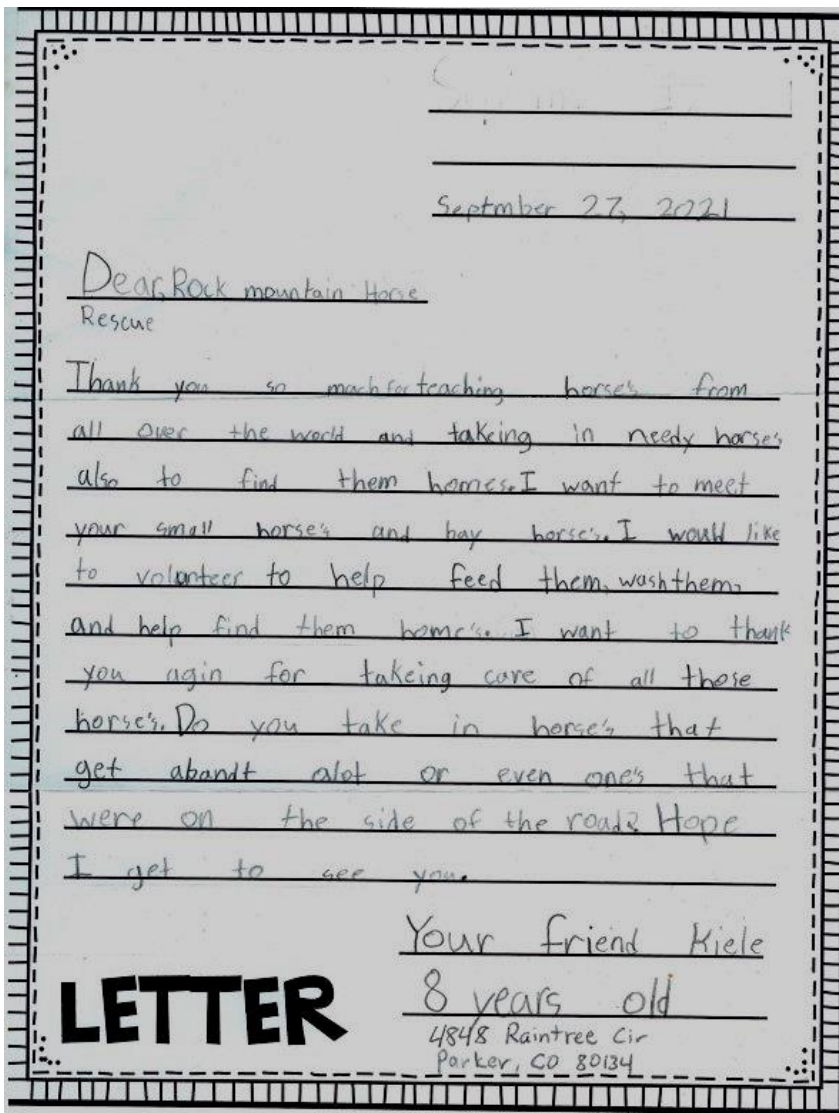 Septmber 27, 2021
Dear, Rock mountain Horse
Rescue
Thank you so mach for teaching horse's from
all over the world and takeing in needy horses
also to find them homes. I want to meet
your small horse's and bay horse's. I would like
to volanteer to help feed them, wash them,
and help find them home's. I want to thank
you agin for takeing care of all those
horse's. Do you take in horse's that
get abandt alot or even one's that
were on the side of the road? Hope
I get to see you.
Your friend Kiele
8 years old
4848 Raintree Cir
Parker, CO 80134
LETTER